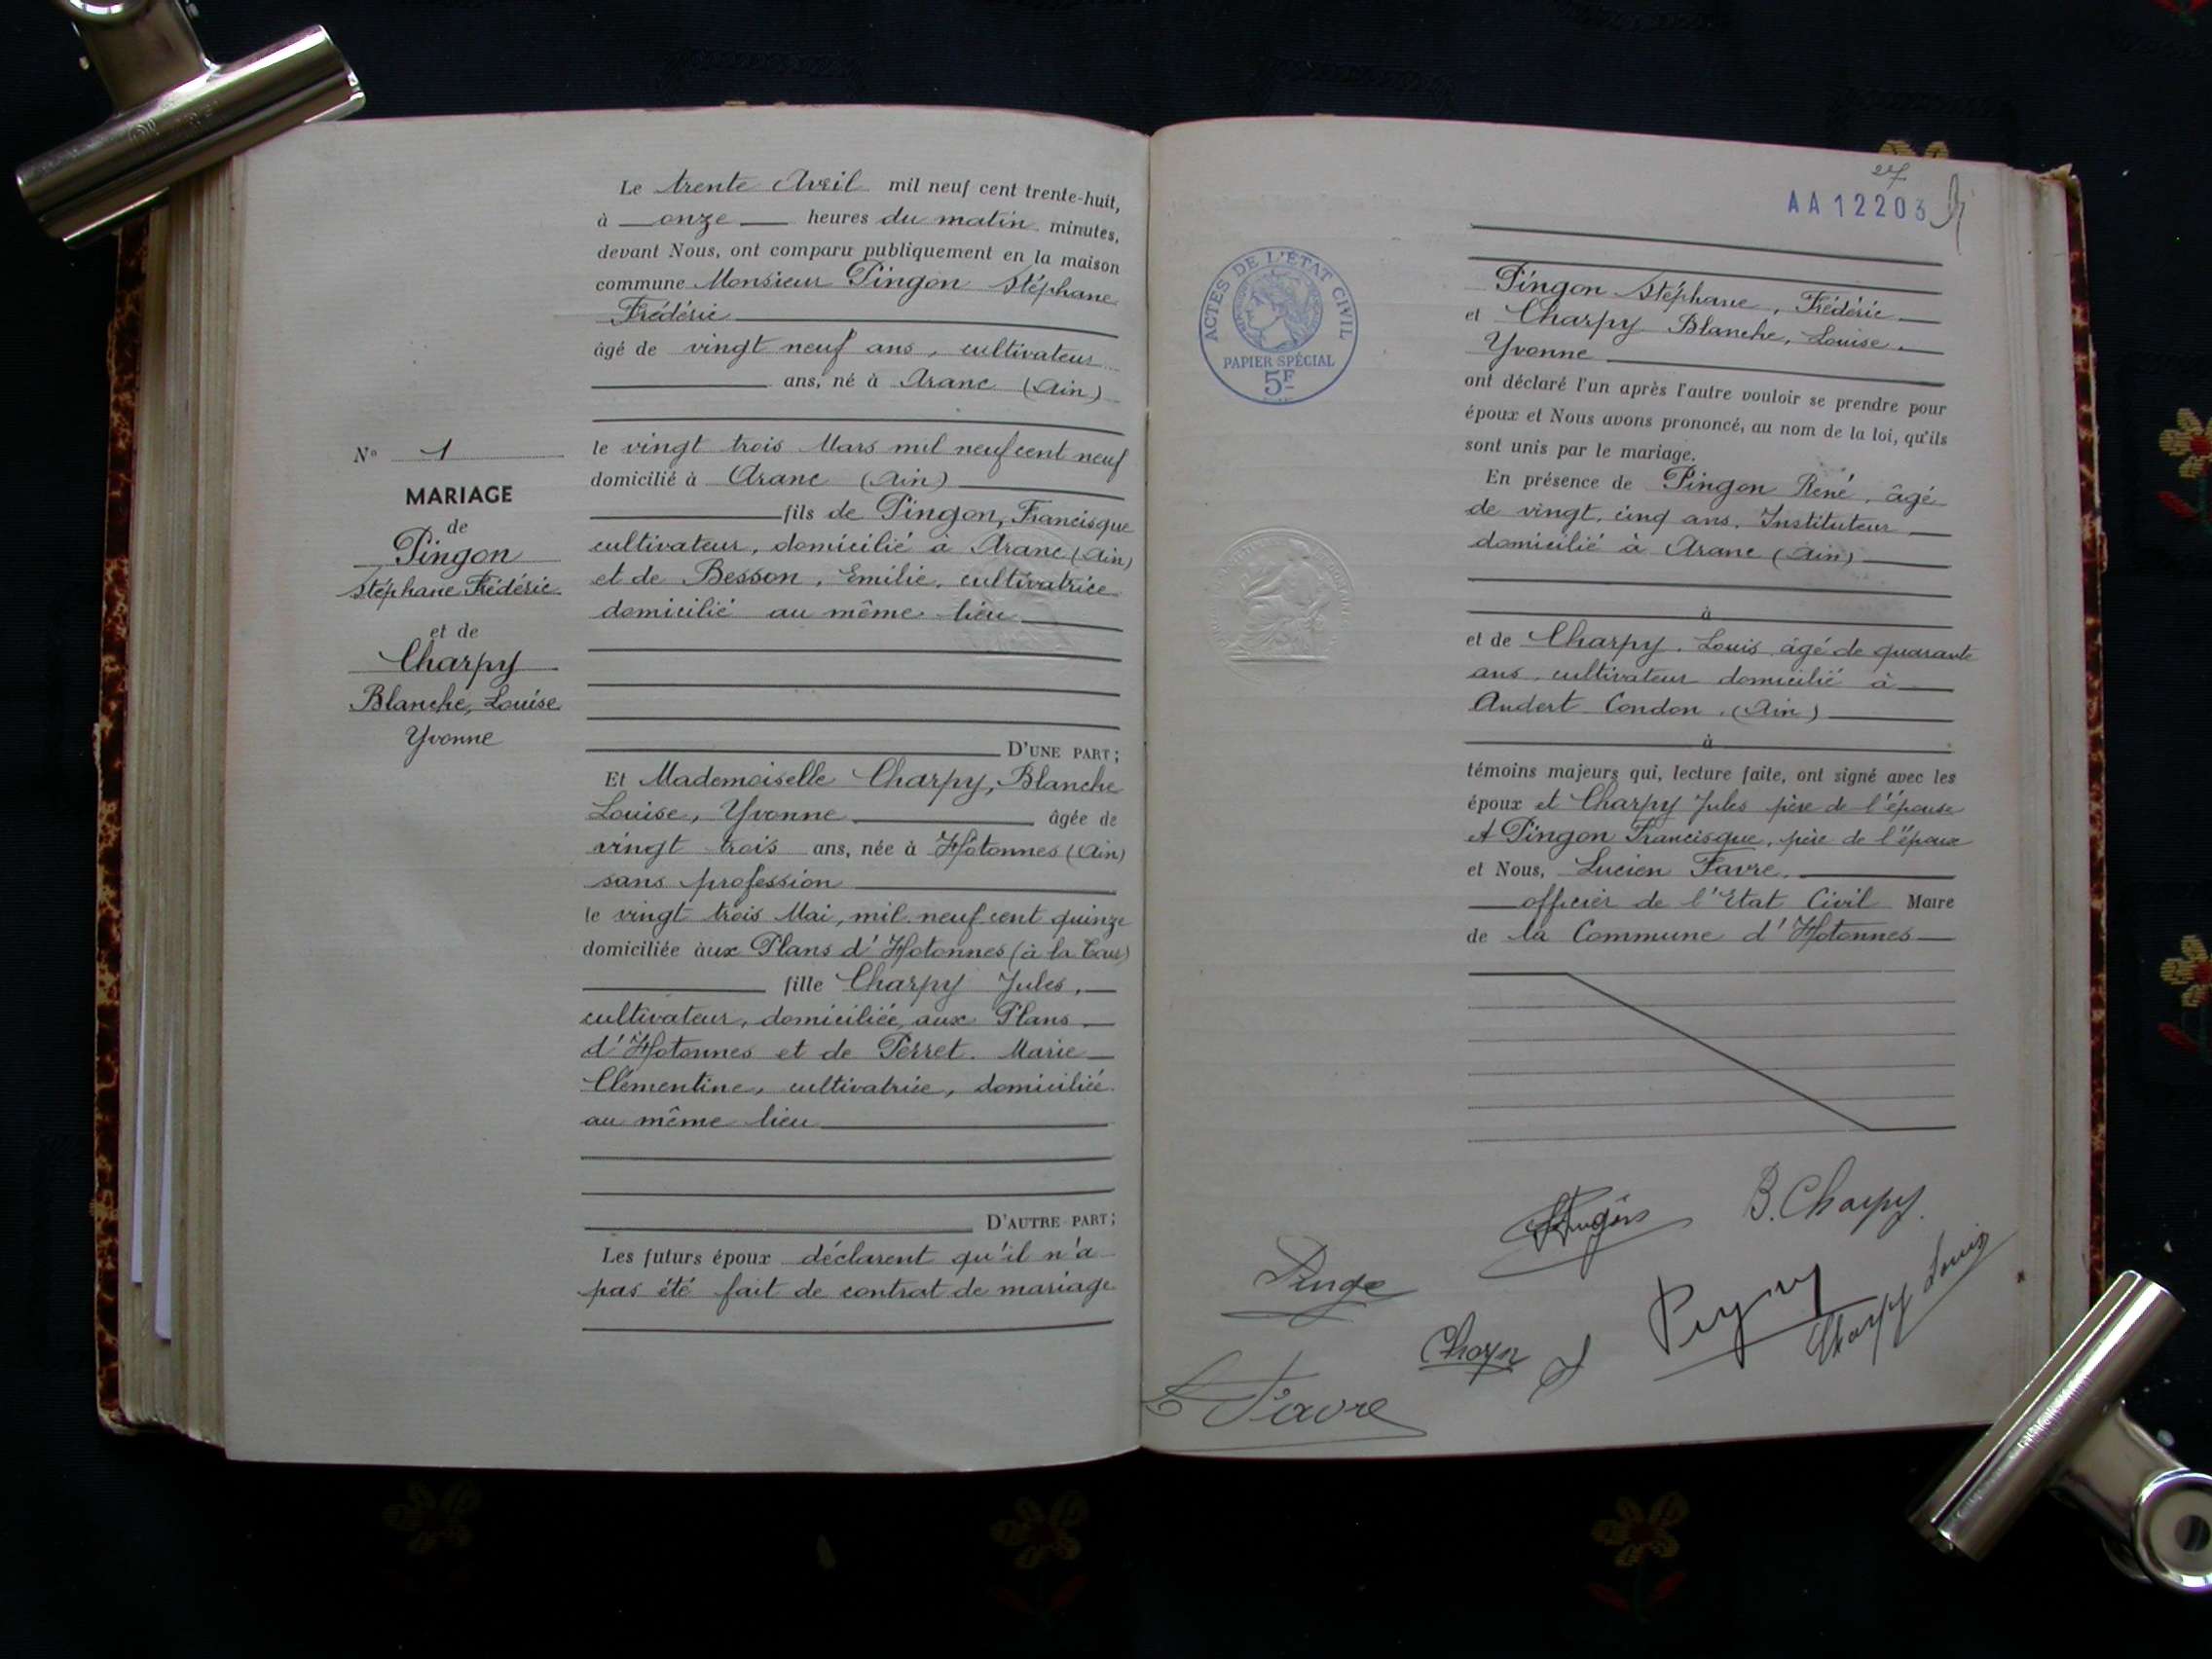 Le trente Avril mil neuf cent trente-huit,
à onze heures du matin minutes,
devant Nous, ont comparu publiquement en la maison
commune Monsieur Pingon Stéphane
Frédéric
âgé de vingt neuf ans, cultivateur
ans, né à Aranc (Ain)
le vingt trois Mars mil neuf cent neuf
domicilié à Aranc (Ain)
fils de Pingon, Francisque
cultivateur, domicilié à Aranc (Ain)
et de Besson, Emilie, cultivatrice
domicilié au même lieu
D'UNE PART;
Et Mademoiselle Charpy, Blanche
Louise, Yvonne âgée de
vingt trois ans, née à Hotonnes (Ain)
sans profession
le vingt trois Mai, mil neuf cent quinze
domiciliée àux Plans d'Hotonnes (à la
fille Charpy Jules,
cultivateur, domiciliée aux Plans
d'Hotonnes et de Perret. Marie
Clémentine, cultivatrice, domiciliée
au même lieu
D'AUTRE PART;
Les futurs époux déclarent qu'il n'a
pas été fait de contrat de mariage
N° 1
MARIAGE
de
Pingon
Stéphane Frédéric
et de
Charpy
Blanche, Louise
Yvonne
27
AA12203
ACTES DE L'ÉTAT CIVIL
PAPIER SPÉCIAL
5F
Pingon Stéphane, Frédéric
et Charpy Blanche, Louise,
Yvonne
ont déclaré l'un après l'autre vouloir se prendre pour
époux et Nous avons prononcé, au nom de la loi, qu'ils
sont unis par le mariage.
En présence de Pingon René, âgé
de vingt. cinq ans, Instituteur
domicilié à Aranc (Ain)
à
et de Charpy. Louis âgé de quarante
ans, cultivateur domicilié à
Andert Condon. (Ain)
à
témoins majeurs qui, lecture faite, ont signé avec les
époux et Charpy Jules père de l'épouse
et Pingon Francisque, père de l'époux
et Nous, Lucien Favre.
officier de l'Etat Civil Maire
de la Commune d'Hotonnes
B. Charpy
Charpy Louis
Favre